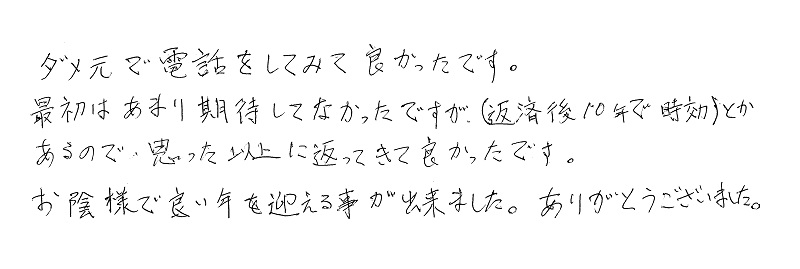 ダメ元で電話をしてみて良かったです。
最初はあまり期待してなかったですが、(返済後10年で時効)とか
あるので、思った以上に返ってきて良かったです。
お陰様で良い年を迎える事が出来ました。ありがとうございました。